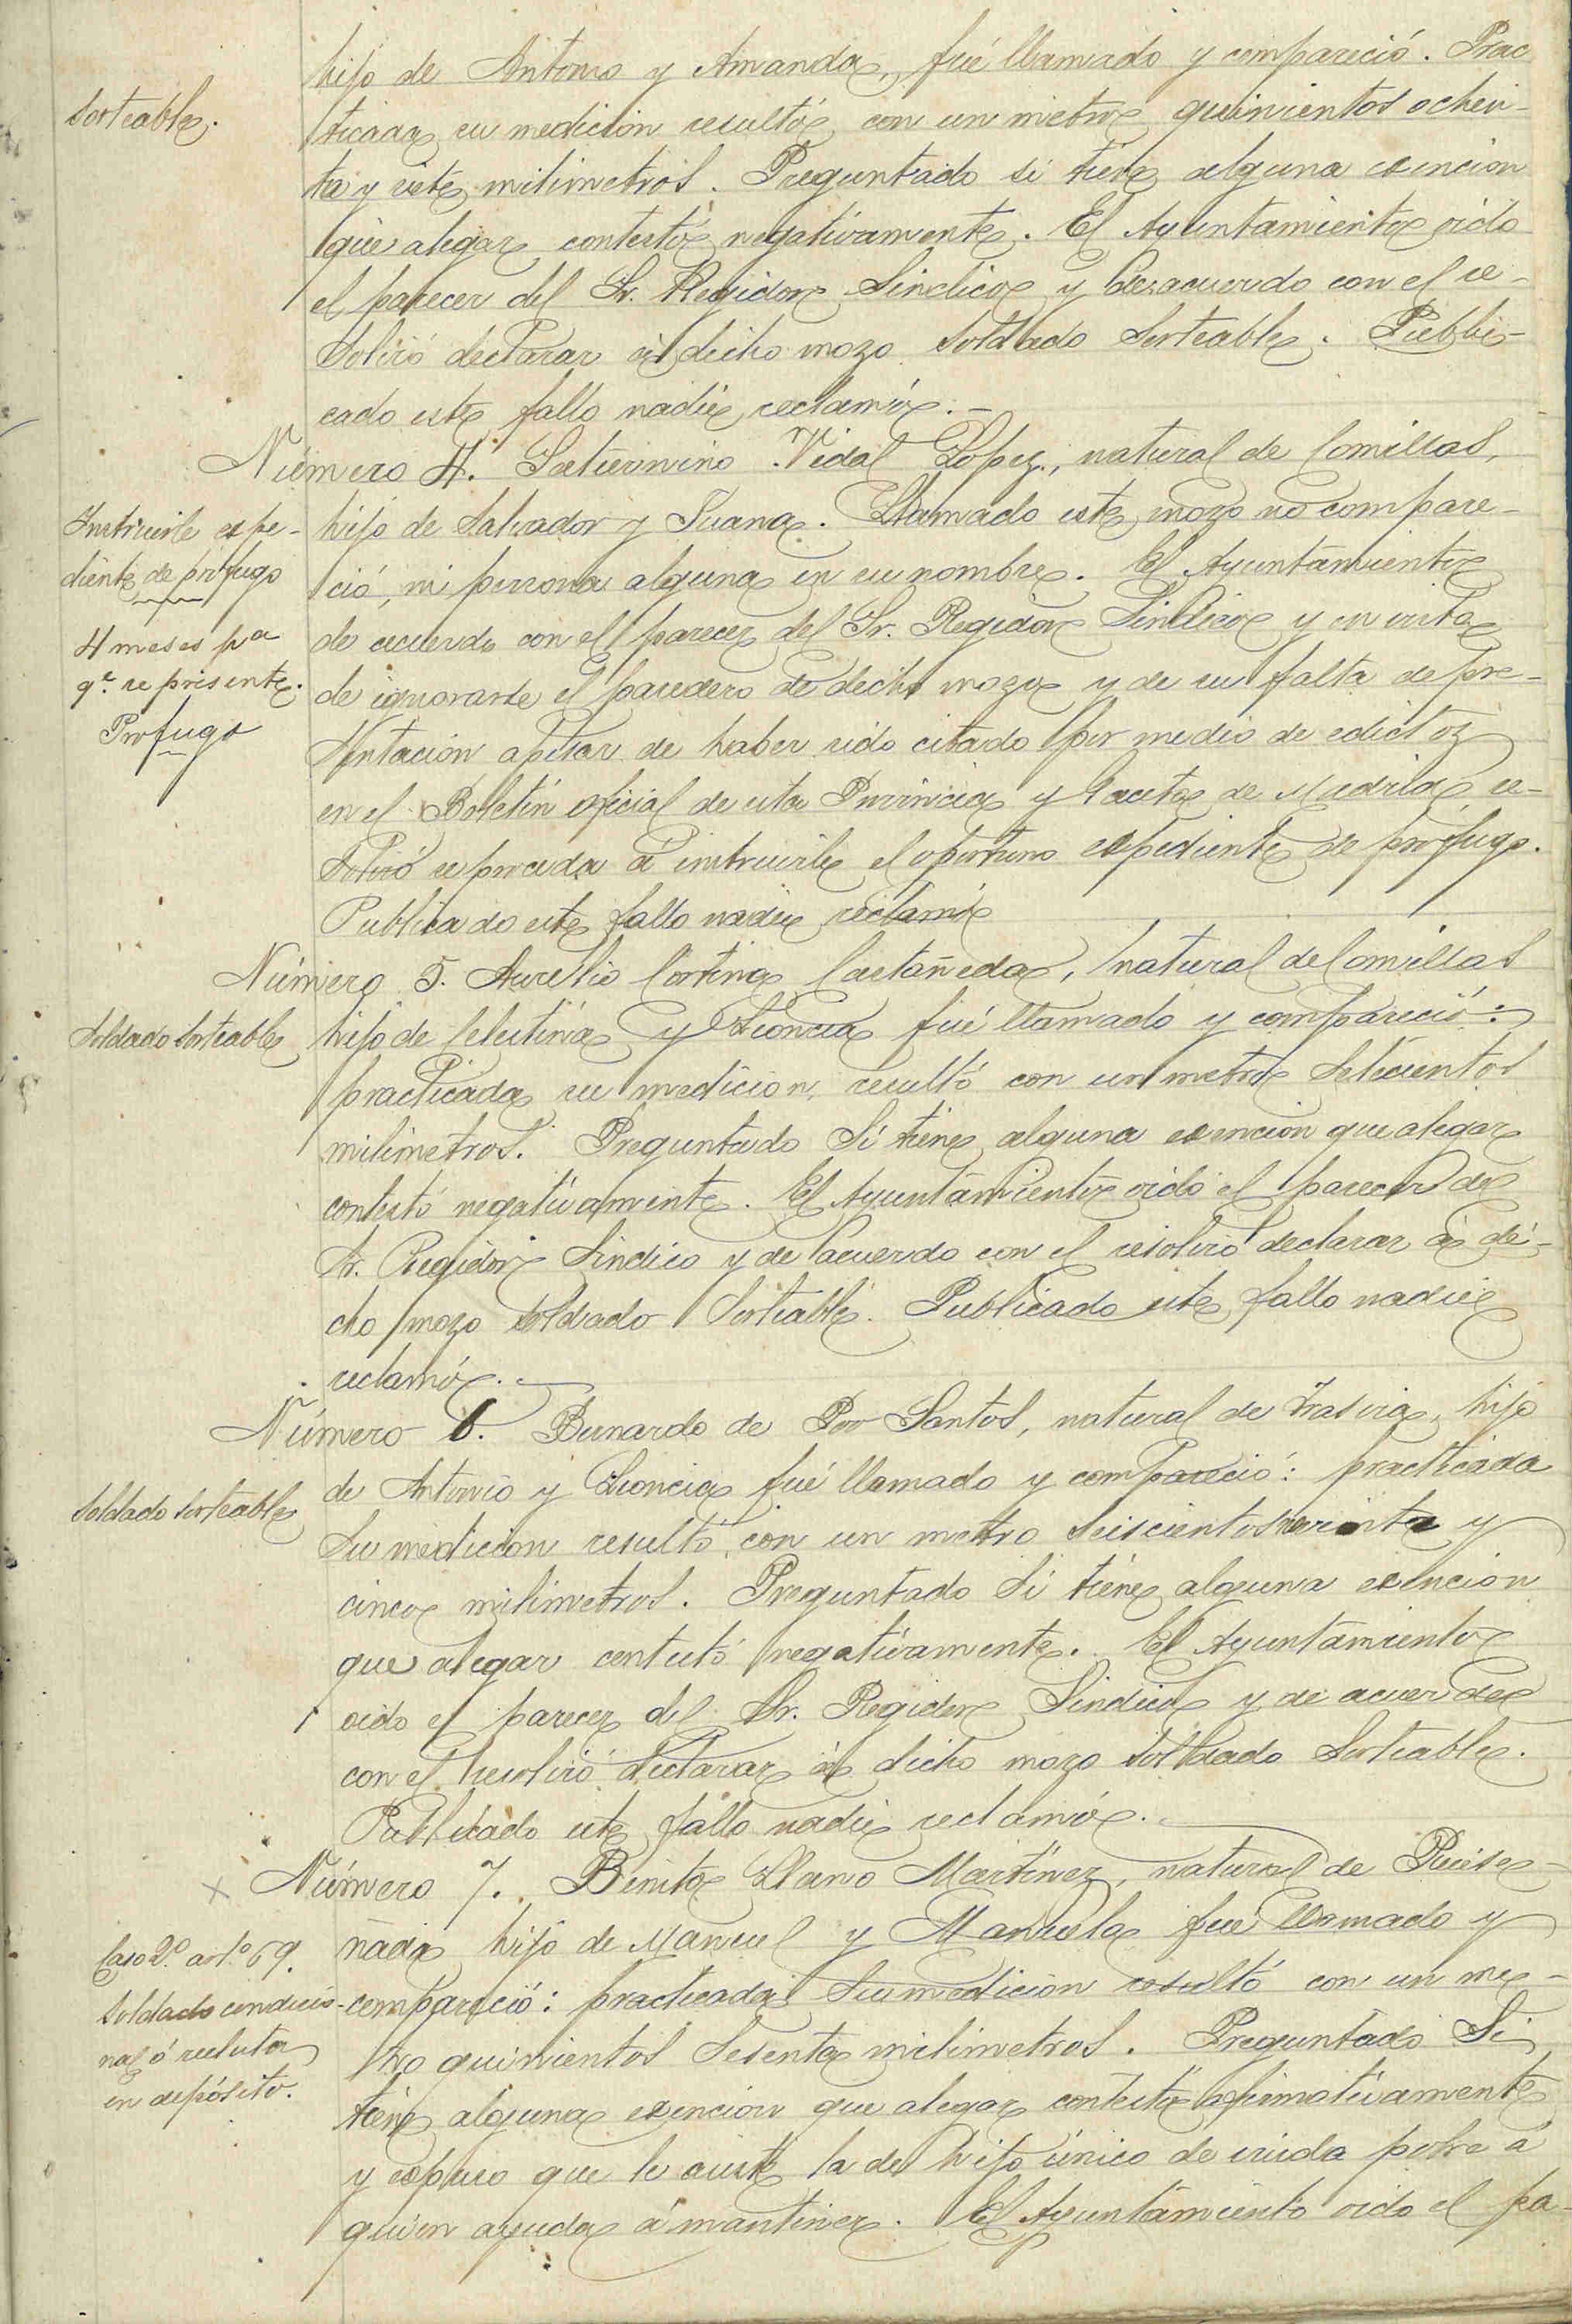 hijo de Antonio y Amanda, fué llamado y compareció. Prac
Sorteable.
ticada su medición resultó con un metro quinientos ochen-
ta y siete milimetros. Preguntado si tiene alguna exencion
que alegar contestó negativamente. El Ayuntamiento oido
el parecer del Sr. Regidor Sindico y de acuerdo con el re-
solvió declarar á dicho mozo soldado Sorteable. Publi-
cado este fallo nadie reclamó.-
Número 4. Saturnino Vidal López, natural de Comillas,
Instruirle espe-
diente de prófugo
4 meses pa
qe. se presente.
Profugo
hijo de Salvador y Juana. Llamado este mozo no compare-
ció, ni persona alguna en su nombre. El Ayuntamiento
de acuerdo con el parecer del Sr. Regidor Sindico y en vista
de ignorarse el paradero de dicho mozo y de su falta de pre-
sentación apesar de haber sido citado por medio de edictos
en el Boletín oficial de esta Provincia y Gaceta de Madrid re-
solvió se proceda á instruirle el oportuno espediente de prófugo.
Publicado este fallo nadie reclamó
Número 5. Aurelio Cortina Castañeda, natural de Comillas
Soldado Sorteable
hijo de Celestina y Leoncia fué llamado y compareció:
practicada su medicion, resultó con un metro setecientos
milimetros. Preguntado Si tiene alguna exencion que alegar
contestó negativamente. El Ayuntamiento oido el parecer del
Sr. Regidor Sindico y de acuerdo con el resolvió declarar á di-
cho mozo soldado Sorteable. Publicado este fallo nadie
reclamó.
Número 6. Bernardo de Poo Santos, natural de Trasvia, hijo
Soldado Sorteable
de Antonio y Leoncia fué llamado y compareció: practicada
Su medicion resultó con un metro Seiscientos y
cinco milimetros. Preguntado Si tiene alguna exencion
que alegar contestó negativamente. El Ayuntamiento
oido el parecer del Sr. Regidor Sindico y de acuerdo
con el resolvió declarar á dicho mozo soldado Sorteable.
Publicado este fallo nadie reclamó.
Número 7. Benito Llano Martínez, natural de Ruise-
Caso 2.º art.º 69.
Soldado condicio-
nal ó recluta
en depósito.
ñada hijo de Manuel y Manuela fué llamado y
compareció: practicada Su medición resultó con un me-
tro quinientos Sesenta milimetros. Preguntado Si
tiene alguna exención que alegar contestó afirmativamente
y espuso que le asiste la de hijo único de viuda pobre á
quien ayuda á mantener. El Ayuntamiento oido el pa-